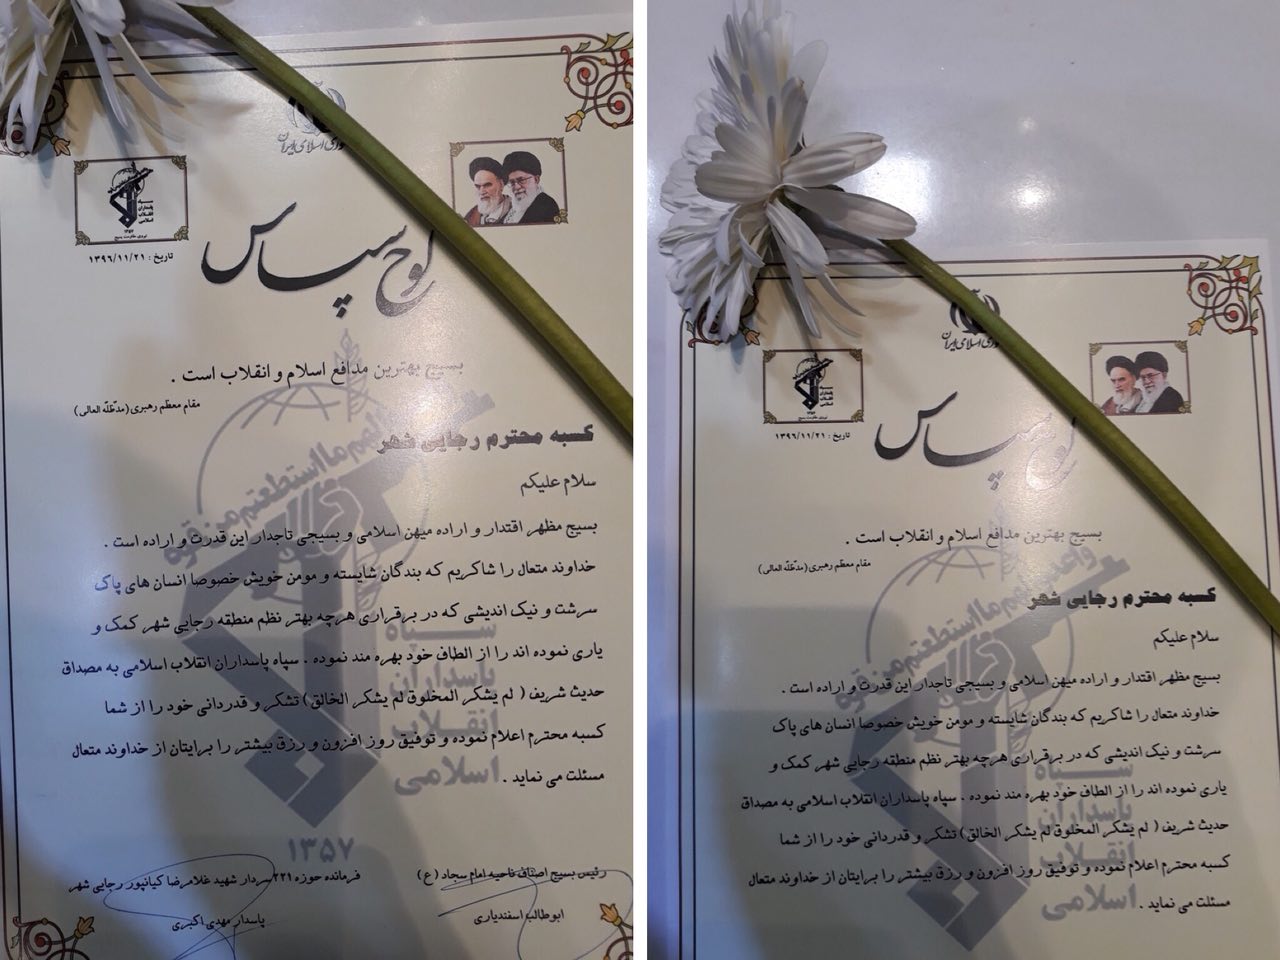 جمهوری اسلامی ایران
سپاه
پاسداران
انقلاب
اسلامی
۱۳۵۷
نیروی مقاومت بسیج
تاریخ : ۱۳۹۶/۱۱/۲۱
لوح سپاس
بسیج بهترین مدافع اسلام و انقلاب است .
مقام معظم رهبری (مدّظلّه العالی)
کسبه محترم رجایی شهر
سلام علیکم
بسیج مظهر اقتدار و اراده میهن اسلامی و بسیجی تاجدار این قدرت و اراده است .
خداوند متعال را شاکریم که بندگان شایسته و مومن خویش خصوصا انسان های پاک
سرشت و نیک اندیشی که در برقراری هرچه بهتر نظم منطقه رجایی شهر کمک و
یاری نموده اند را از الطاف خود بهره مند نموده . سپاه پاسداران انقلاب اسلامی به مصداق
حدیث شریف ( لم یشکر المخلوق لم یشکر الخالق) تشکر و قدردانی خود را از شما
کسبه محترم اعلام نموده و توفیق روز افزون و رزق بیشتر را برایتان از خداوند متعال
مسئلت می نماید .
سپاه
پاسداران
انقلاب
اسلامی
۱۳۵۷
رئیس بسیج اصناف ناحیه امام سجاد (ع)
ابوطالب اسفندیاری
فرمانده حوزه ۲۲۱ سردار شهید غلامرضا کیانپور رجایی شهر
پاسدار مهدی اکبری
وری اسلامی ایران
سپاه
پاسداران
انقلاب
اسلامی
۱۳۵۷
نیروی مقاومت بسیج
تاریخ : ۱۳۹۶/۱۱/۲۱
لوح سپاس
بسیج بهترین مدافع اسلام و انقلاب است .
مقام معظم رهبری (مدّظلّه العالی)
کسبه محترم رجایی شهر
سلام علیکم
بسیج مظهر اقتدار و اراده میهن اسلامی و بسیجی تاجدار این قدرت و اراده است .
خداوند متعال را شاکریم که بندگان شایسته و مومن خویش خصوصا انسان های پاک
سرشت و نیک اندیشی که در برقراری هرچه بهتر نظم منطقه رجایی شهر کمک و
یاری نموده اند را از الطاف خود بهره مند نموده . سپاه پاسداران انقلاب اسلامی به مصداق
حدیث شریف ( لم یشکر المخلوق لم یشکر الخالق) تشکر و قدردانی خود را از شما
کسبه محترم اعلام نموده و توفیق روز افزون و رزق بیشتر را برایتان از خداوند متعال
مسئلت می نماید .
سپاه
پاسداران
انقلاب
اسلامی